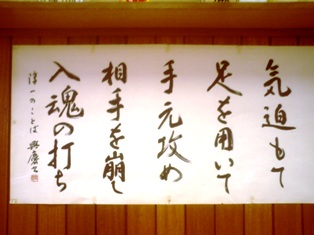 気迫もて
足を用いて
手元攻め
相手を崩し
入魂の打ち